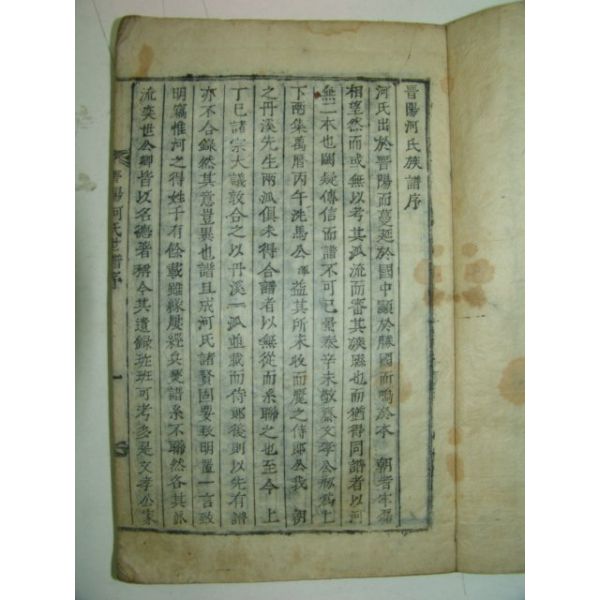 晋陽河氏族譜序
河氏出於晋陽而蔓延於國中顯於勝國而鳴於本 朝者牢
相望然而或無以考其派流而審其族也而猶得同譜者以河
無二本也闕疑傳信而譜不可已景泰辛未敬齋文孝公始爲上
下兩集萬曆丙午洗馬公 益其所未收而廣之侍郎公我 朝
之丹溪先生兩派俱未得合譜者以無從而系聯之也至今 上
丁巳諸宗大議敦合之以丹溪一派並載而侍郎後則以先有譜
亦不合錄然其意豈異也譜且成河氏諸賢固要致明置一言致
明竊惟河之得姓于有餘載雖緣屢經兵燹譜系不聯然各其派
流奕世公卿皆以名德著稱今其遺錄班班可考多是文孝公家
晋陽河氏世譜序
一